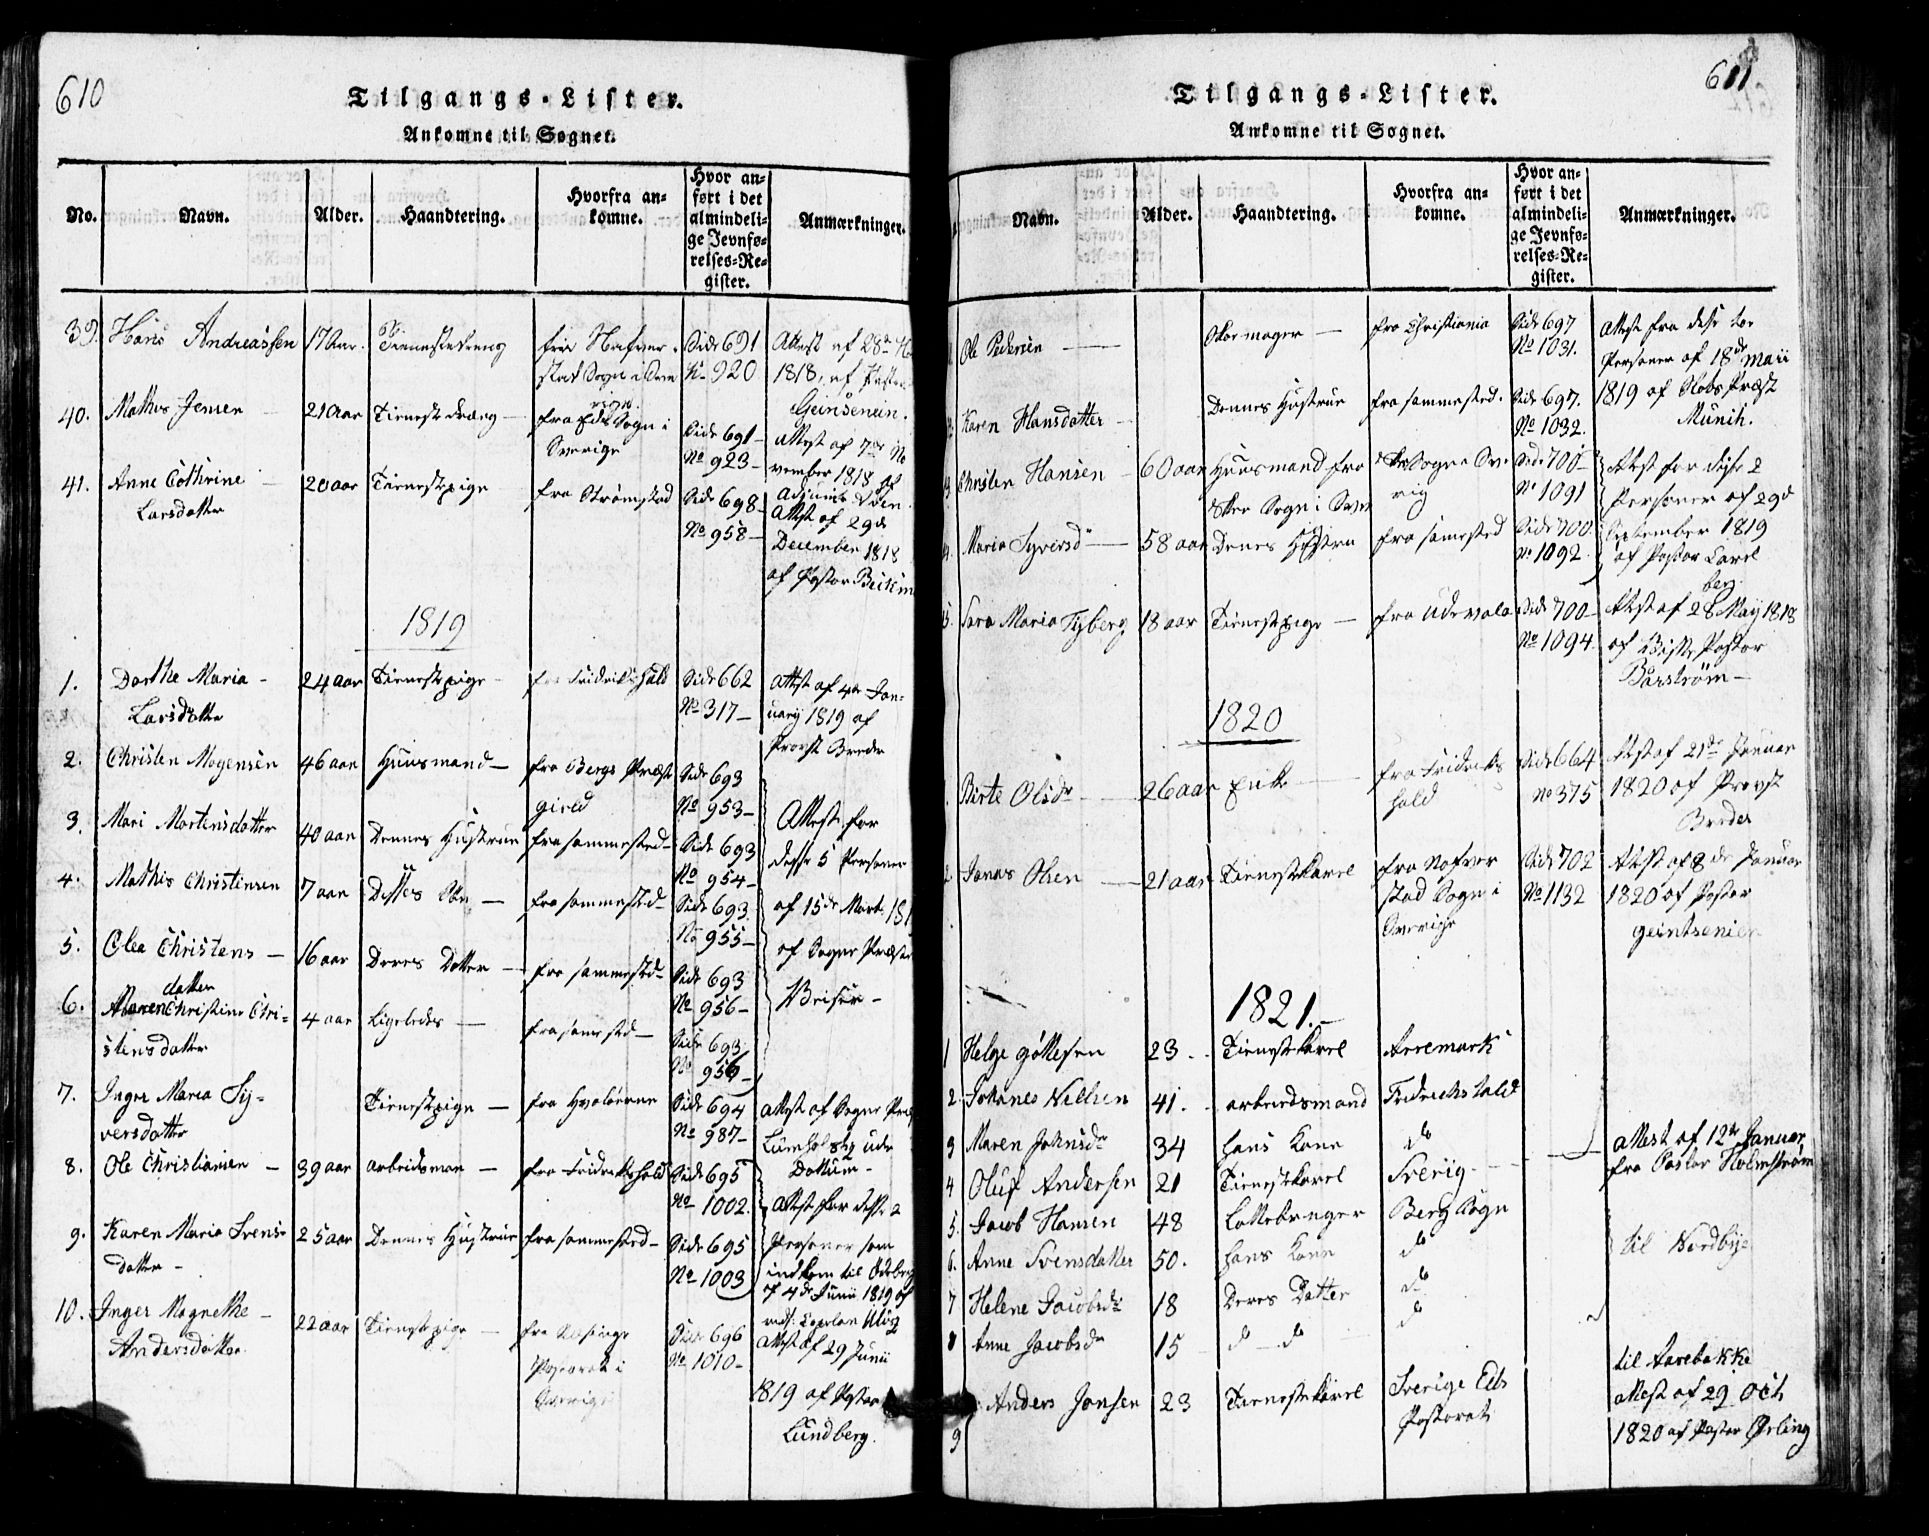 610
Tilgangs-Lister.
Ankomne til Sognet.
No.
Navn.
Alder.
Haandtering.
Hvorfra ankomne.
Hvor anført i det almindelige Jevnførelses-Register.
Anmærkninger.
39. Hans Andreassen 17 Aar. Tienestedreng fra Nafverstad Sogn i Sverrige Side 691 No 920 Attest af 28de 1818, af Pastor
40. Mathis Jensen 21 aar Tienestdreng fra Eds Sogn i Sverige Side 691 No 923 Attest af 7de November 1818 af
41. Anne Cathrine Larsdatter 20 aar Tienestpige fra Strømstad Side 698 No 958 Attest af 29de December 1818 af Pastor
1819
1. Dorthe Maria Larsdatter 24 aar Tienestpige fra Fridrikshald Side 662 No 317 Attest af 4de January 1819 af Provst Breder
2. Christen Mogensen 46 aar Huusmand fra Bergs Præstegield Side 693 No 953
3. Mari Mortensdatter 40 aar Dennes Hustrue fra sammested Side 693 No 954
4. Mathis Christensen 7 aar Disses Søn fra sammested Side 693 No 955
5. Olea Christensdatter 16 aar Deres Datter fra sammested Side 693 No 956
6. Maren Christine Christensdatter 4 aar Ligeledes fra samested Side 693 No 956
Attest for disse 5 Personer af 15de Marts 181 af Sogne Præsten
7. Inger Maria Syversdatter Tienestpige fra Hvaløerne Side 694 No 987 Attest af Sogne Præst Lumholtz uden Dattum
8. Ole Christiansen 39 aar arbeidsman fra Fridrikshald Side 695 No 1002.
9. Karen Maria Svensdatter 25 aar Dennes Hustrue fra sammested Side 695 No 1003
Attest for disse 2 Personer som indkom til 4de Junii 1819 af
10. Inger Magrethe Andersdatter 22 aar Tienestpige fra Pastorat i Sverrige Side 696 No 1010 Attest af 29 Junii 1819 af Pastor Lundberg.
611.
Tilgangs-Lister.
Ankomne til Sognet.
Navn.
Alder.
Haandtering.
Hvorfra ankomne.
Hvor anført i det almindelige Jevnførelses-Register.
Anmærkninger.
Ole Pedersen Skoemager fra Christiania Side 697 No 1031.
Karen Hansdatter Dennes Hustrue fra sammested. Side 697. No 1032.
Attest fra disse to Personer af 18de Maii 1819 af Slots Præst Munch.
Christen Hansen 60 aar Huusmand fra Skee Sogn i Sverrig Side 700 No 1091
Maria Syversdr 58 aar Denes Hustru fra samested Side 700 No 1092
Attest for disse 2 Personer af 29d September 1819 af Pastor Carlberg
Sara Maria Tyberg 18 aar Tienestpige fra Udevala Side 700 No 1094 Attest af 28 May 1818 af Pastor Barstrøm
1820
Birte Olsdr 26 aar Enke fra Fridrikshald Side 664 No 375 Attest af 21de Januar 1820 af Provst Breder
2. Jonas Olsen 21 aar Tienestekarl fra Nafverstad Sogn i Sverige Side 702 No 1132 Attest af 8de Januar 1820 af Pastor
1821.
1 Helge Gøttesen 23. Tienestekarl Arremark
2 Johanes Nielsen 41. arbeidsmand Fridrichshald
3 Maren Johnsdr 34 hans Kone do
4 Oluf Andersen 21 Tienestekarl Sverig attest af 12te Januar fra Pastor Holmstrøm
5. Jacob Hansen 48 Berg Sogn
6. Anne Svensdatter 50. hans Kone do
til Nordbye
7 Helene Jacobsdr 18 Deres Datter do
8 Anne Jacobsdr 15 d d do
9 Anders Jonsen 23 Tienestekarl Sverige Eds Pastorat til Aarebakke attest af 29 Oct 1820 af Pastor Ørling